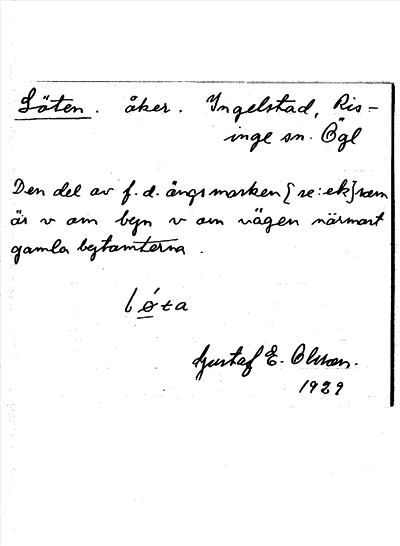 Löten. åker. Ingelstad, Ris-
inge sn. Ögl
Den del av f.d. ängsmarken [se: ek] som
är v om byn v om vägen närmast
gamla bytomterna.
løta
Gustaf E. Olsson.
1929